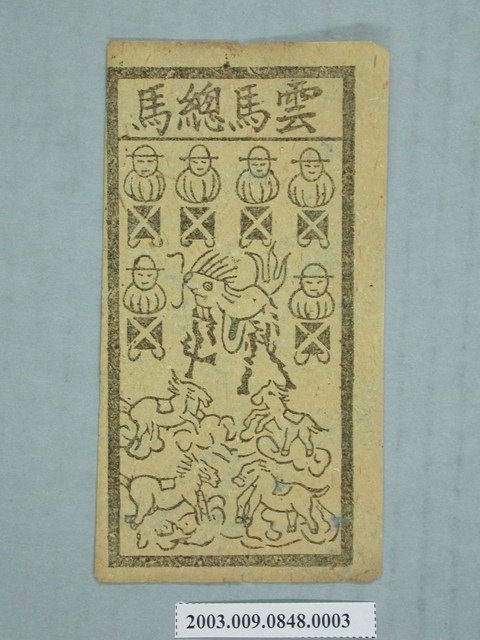 雲馬總馬
2003.009.0848.0003